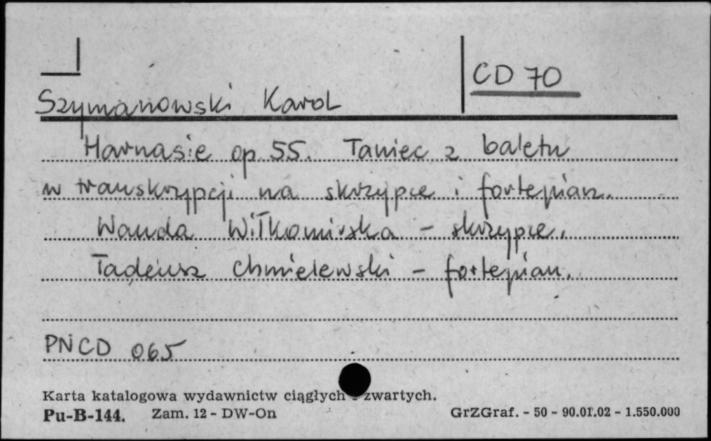 CD 70
Szymanowski Karol
Harnasie op. 55. Taniec z baletu
w transkrypcji na skrzypce i fortepian.
Wanda Wiłkomirska - skrzypce.
Tadeusz Chmielewski - fortepian.
PNCD 065
Karta katalogowa wydawnictw ciągłych i zwartych.
Pu-B-144. Zam. 12 - DW-On GrZGraf. - 50 - 90.01.02 - 1.550.000